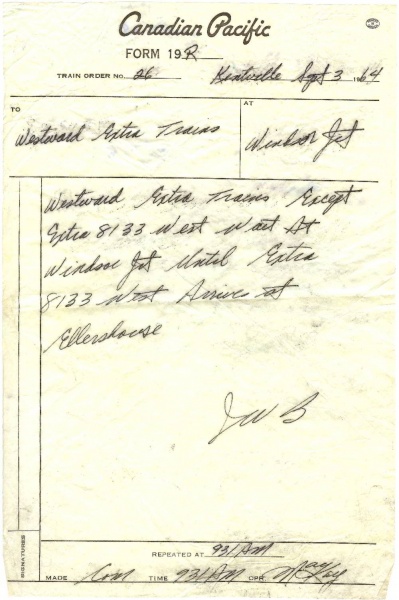 Canadian Pacific
FORM 19 R
TRAIN ORDER NO. 26 Kentville Sept 3 1964
TO AT
Westward Extra Trains Windsor Jct
Westward Extra Trains Except
Extra 8133 West Wait At
Windsor Jct Until Extra
8133 West Arrives at
Ellershouse
JWB
SIGNATURES
REPEATED AT 931 AM
MADE Com TIME 931 AM OPR May Kay